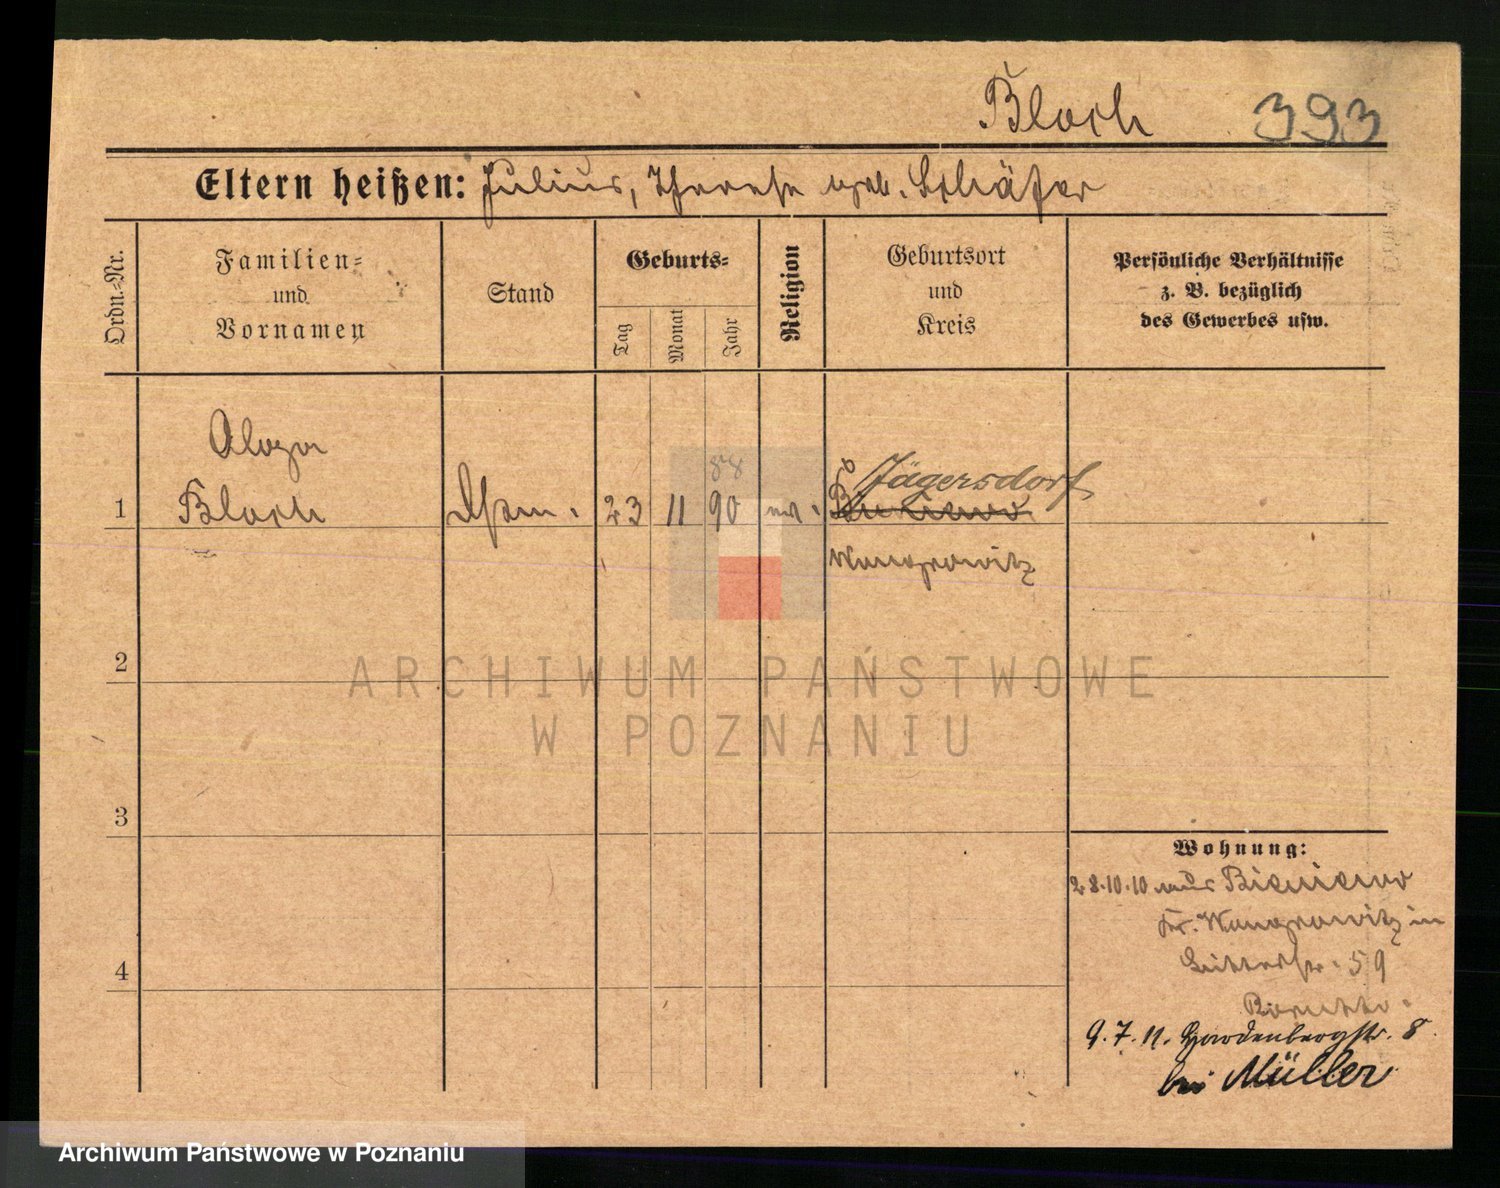 Bloch 393
Eltern heißen: Julius, Therese geb. Schäfer
Ordn.-Nr.
Familien-
und
Vornamen
Stand
Geburts-
Tag
Monat
Jahr
Religion
Geburtsort
und
Kreis
Persönliche Verhältnisse
z. B. bezüglich
des Gewerbes usw.
88
Jägersdorf
1 Bloch 23 11 90 ev.
Wongrowitz
2
ARCHIWUM PAŃSTWOWE
W POZNANIU
3
Wohnung:
28.10.10 aus Bieniewo
Kr. Wongrowitz in
59
9.7.11. Hardenbergstr. 8
bei Müller
4
Archiwum Państwowe w Poznaniu